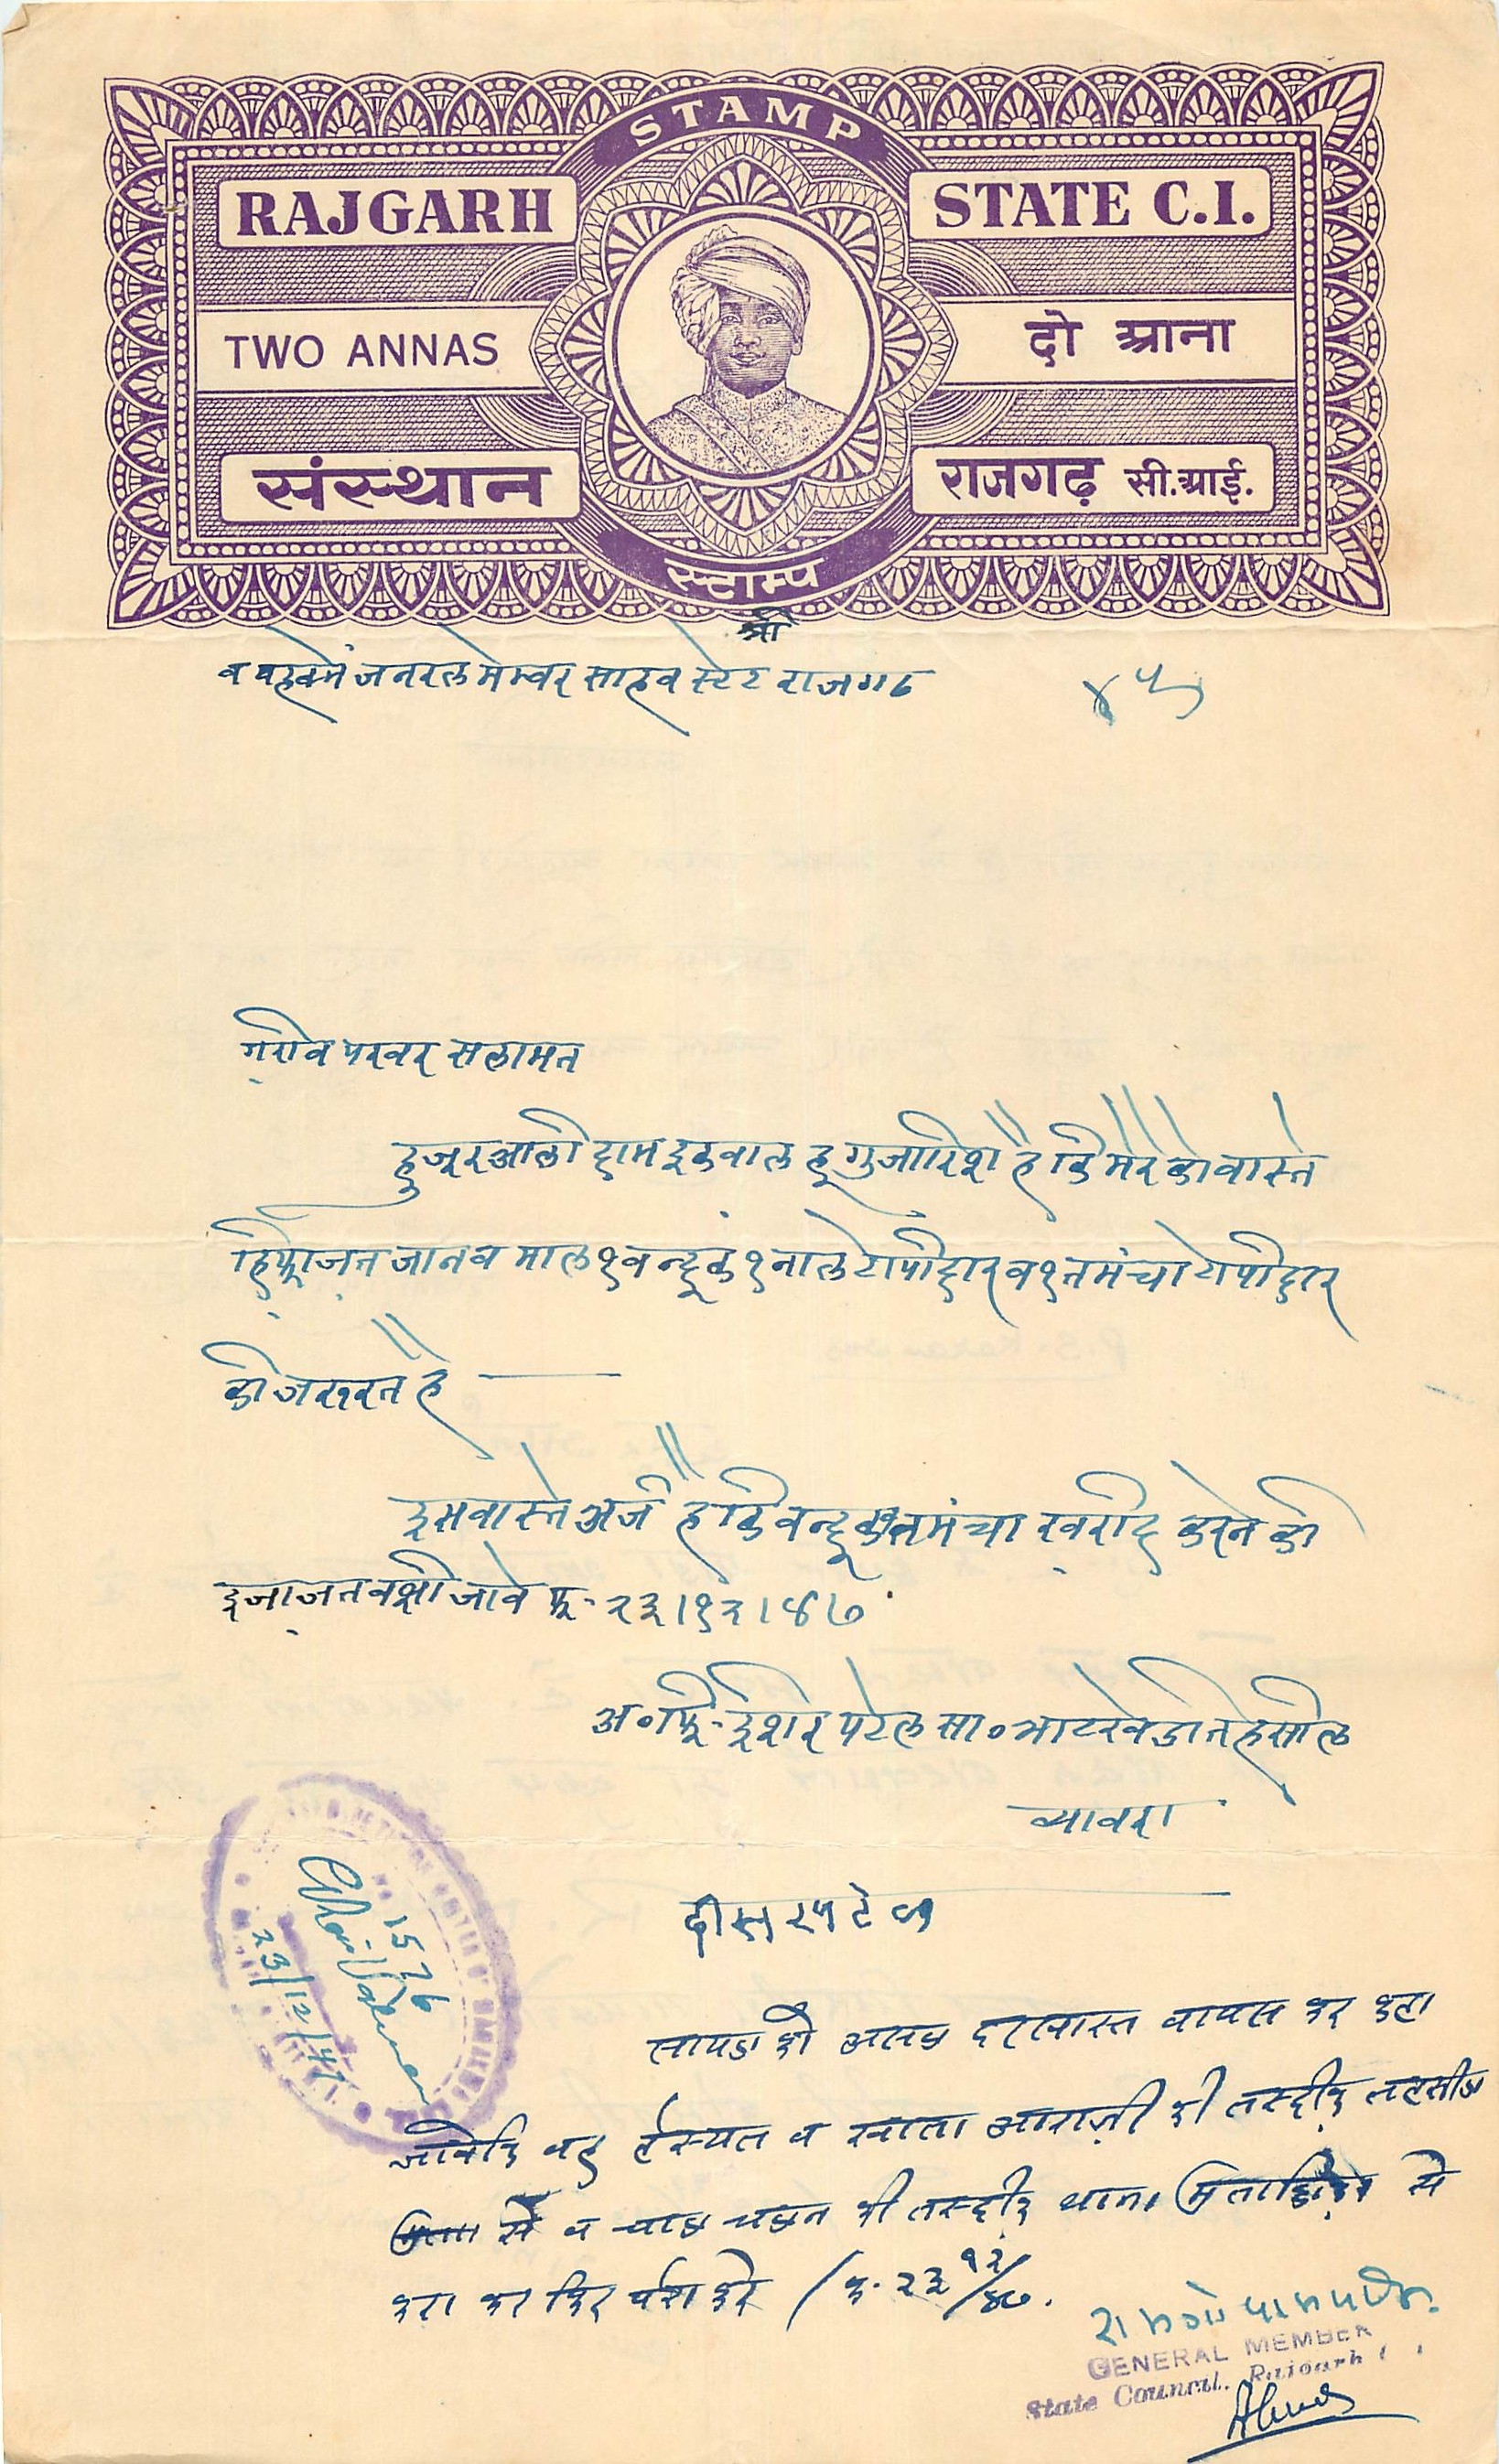 STAMP
RAJGARH STATE C.I.
TWO ANNAS दो आना
संस्थान राजगढ़ सी.आई.
स्टाम्प
श्री
जनरल मेम्बर साहब स्टेट राजगढ
४५
ग़रीब परवर सलामत
हुजूर आली दाम इकबाल हू गुजारिश है कि मेरे को वास्ते
हिफ़ाज़त जान व माल १ बन्दूक १ नाले टोपीदार व १ तमंचा टोपीदार
की जरूरत है
इस वास्ते अर्ज है कि बन्दूक तमंचा ख़रीद करने की
इजाज़त बक्षी जावे फ़- २३।१२।४७
पटेल सा० तहसील
ब्यावरा
1576
23/12/47
सायल को असल दरखास्त वापस कर कहा
जावे कि वह हैस्यत व खाता आराज़ी की तस्दीक़ तहसील
से व चाल चलन की तस्दीक़ थाना से
करा कर फिर पेश करे / फ़- २३/१२/४७.
GENERAL MEMBER
State Council, Rajgarh